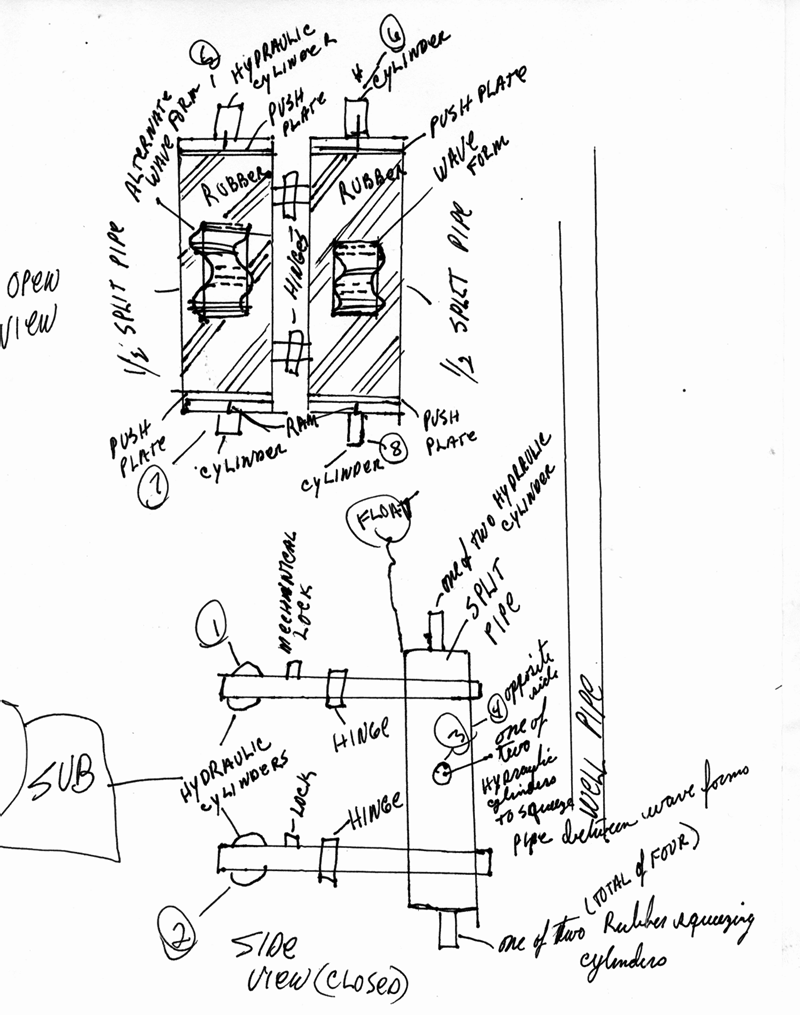 5
HYDRAULIC
CYLINDER
6
H
CYLINDER
PUSH
PLATE
PUSH PLATE
ALTERNATE
WAVE FORM
WAVE
FORM
RUBBER
RUBBER
OPEN
VIEW
1/2 SPLIT PIPE
HINGES
1/2 SPLIT PIPE
PUSH
PLATE
7
CYLINDER
RAM
CYLINDER
8
PUSH
PLATE
FLOAT
one of TWO HYDRAULIC
CYLINDER
SPLIT
PIPE
MECHANICAL
LOCK
1
HINGE
4 opposite
side
3
one of
two
HYdraulic
cylinders
TO squeeze
pipe between wave forms
WELL PIPE
SUB
HYDRAULIC
CYLINDERS
LOCK
HINGE
2
(TOTAL of FOUR)
one of two Rubber squeezing
cylinders
SIDE
VIEW (CLOSED)